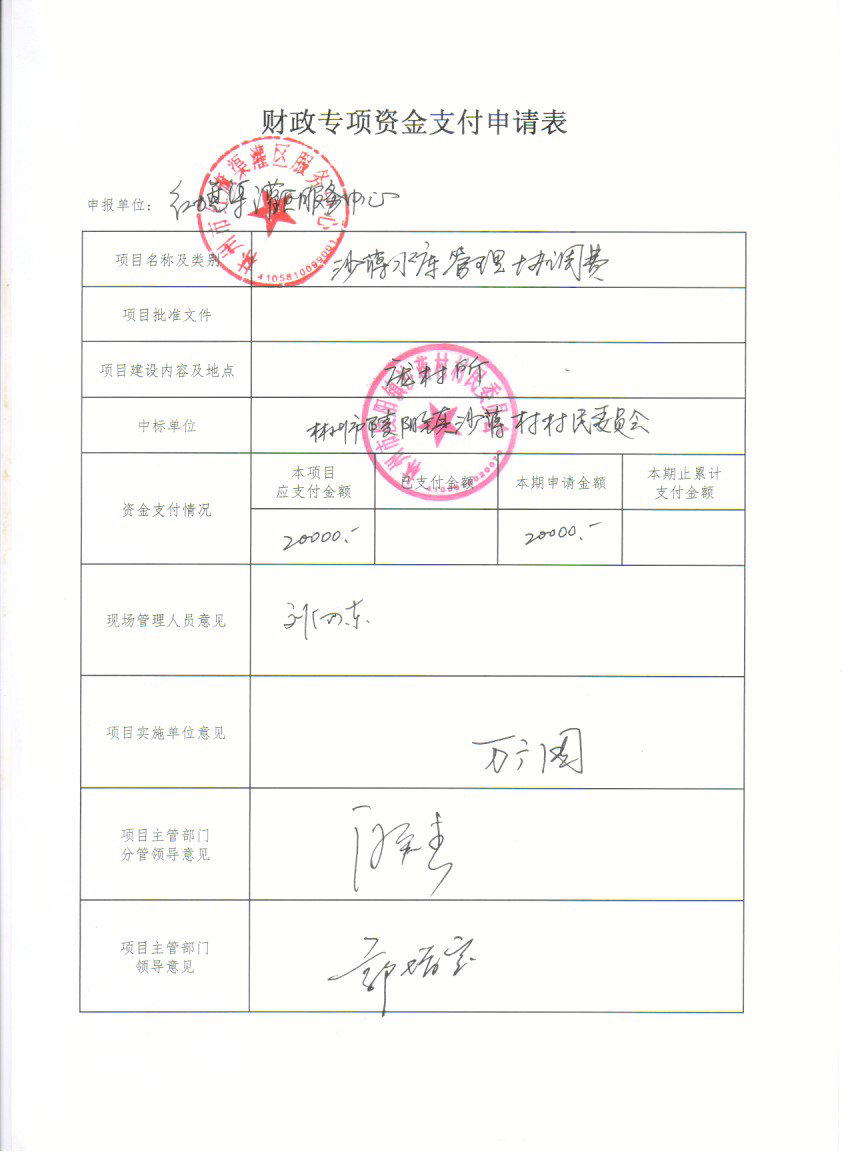 财政专项资金支付申请表
申报单位：红旗渠灌区服务中心
项目名称及类别 沙蒋水库管理协调费
项目批准文件
项目建设内容及地点 庞村所
中标单位 林州市陵阳镇沙蒋村村民委员会
资金支付情况
本项目 应支付金额 已支付金额 本期申请金额 本期止累计 支付金额
20000.- 20000.-
现场管理人员意见
项目实施单位意见
项目主管部门
分管领导意见
项目主管部门
领导意见
林州市红旗渠灌区服务中心
4105810099001